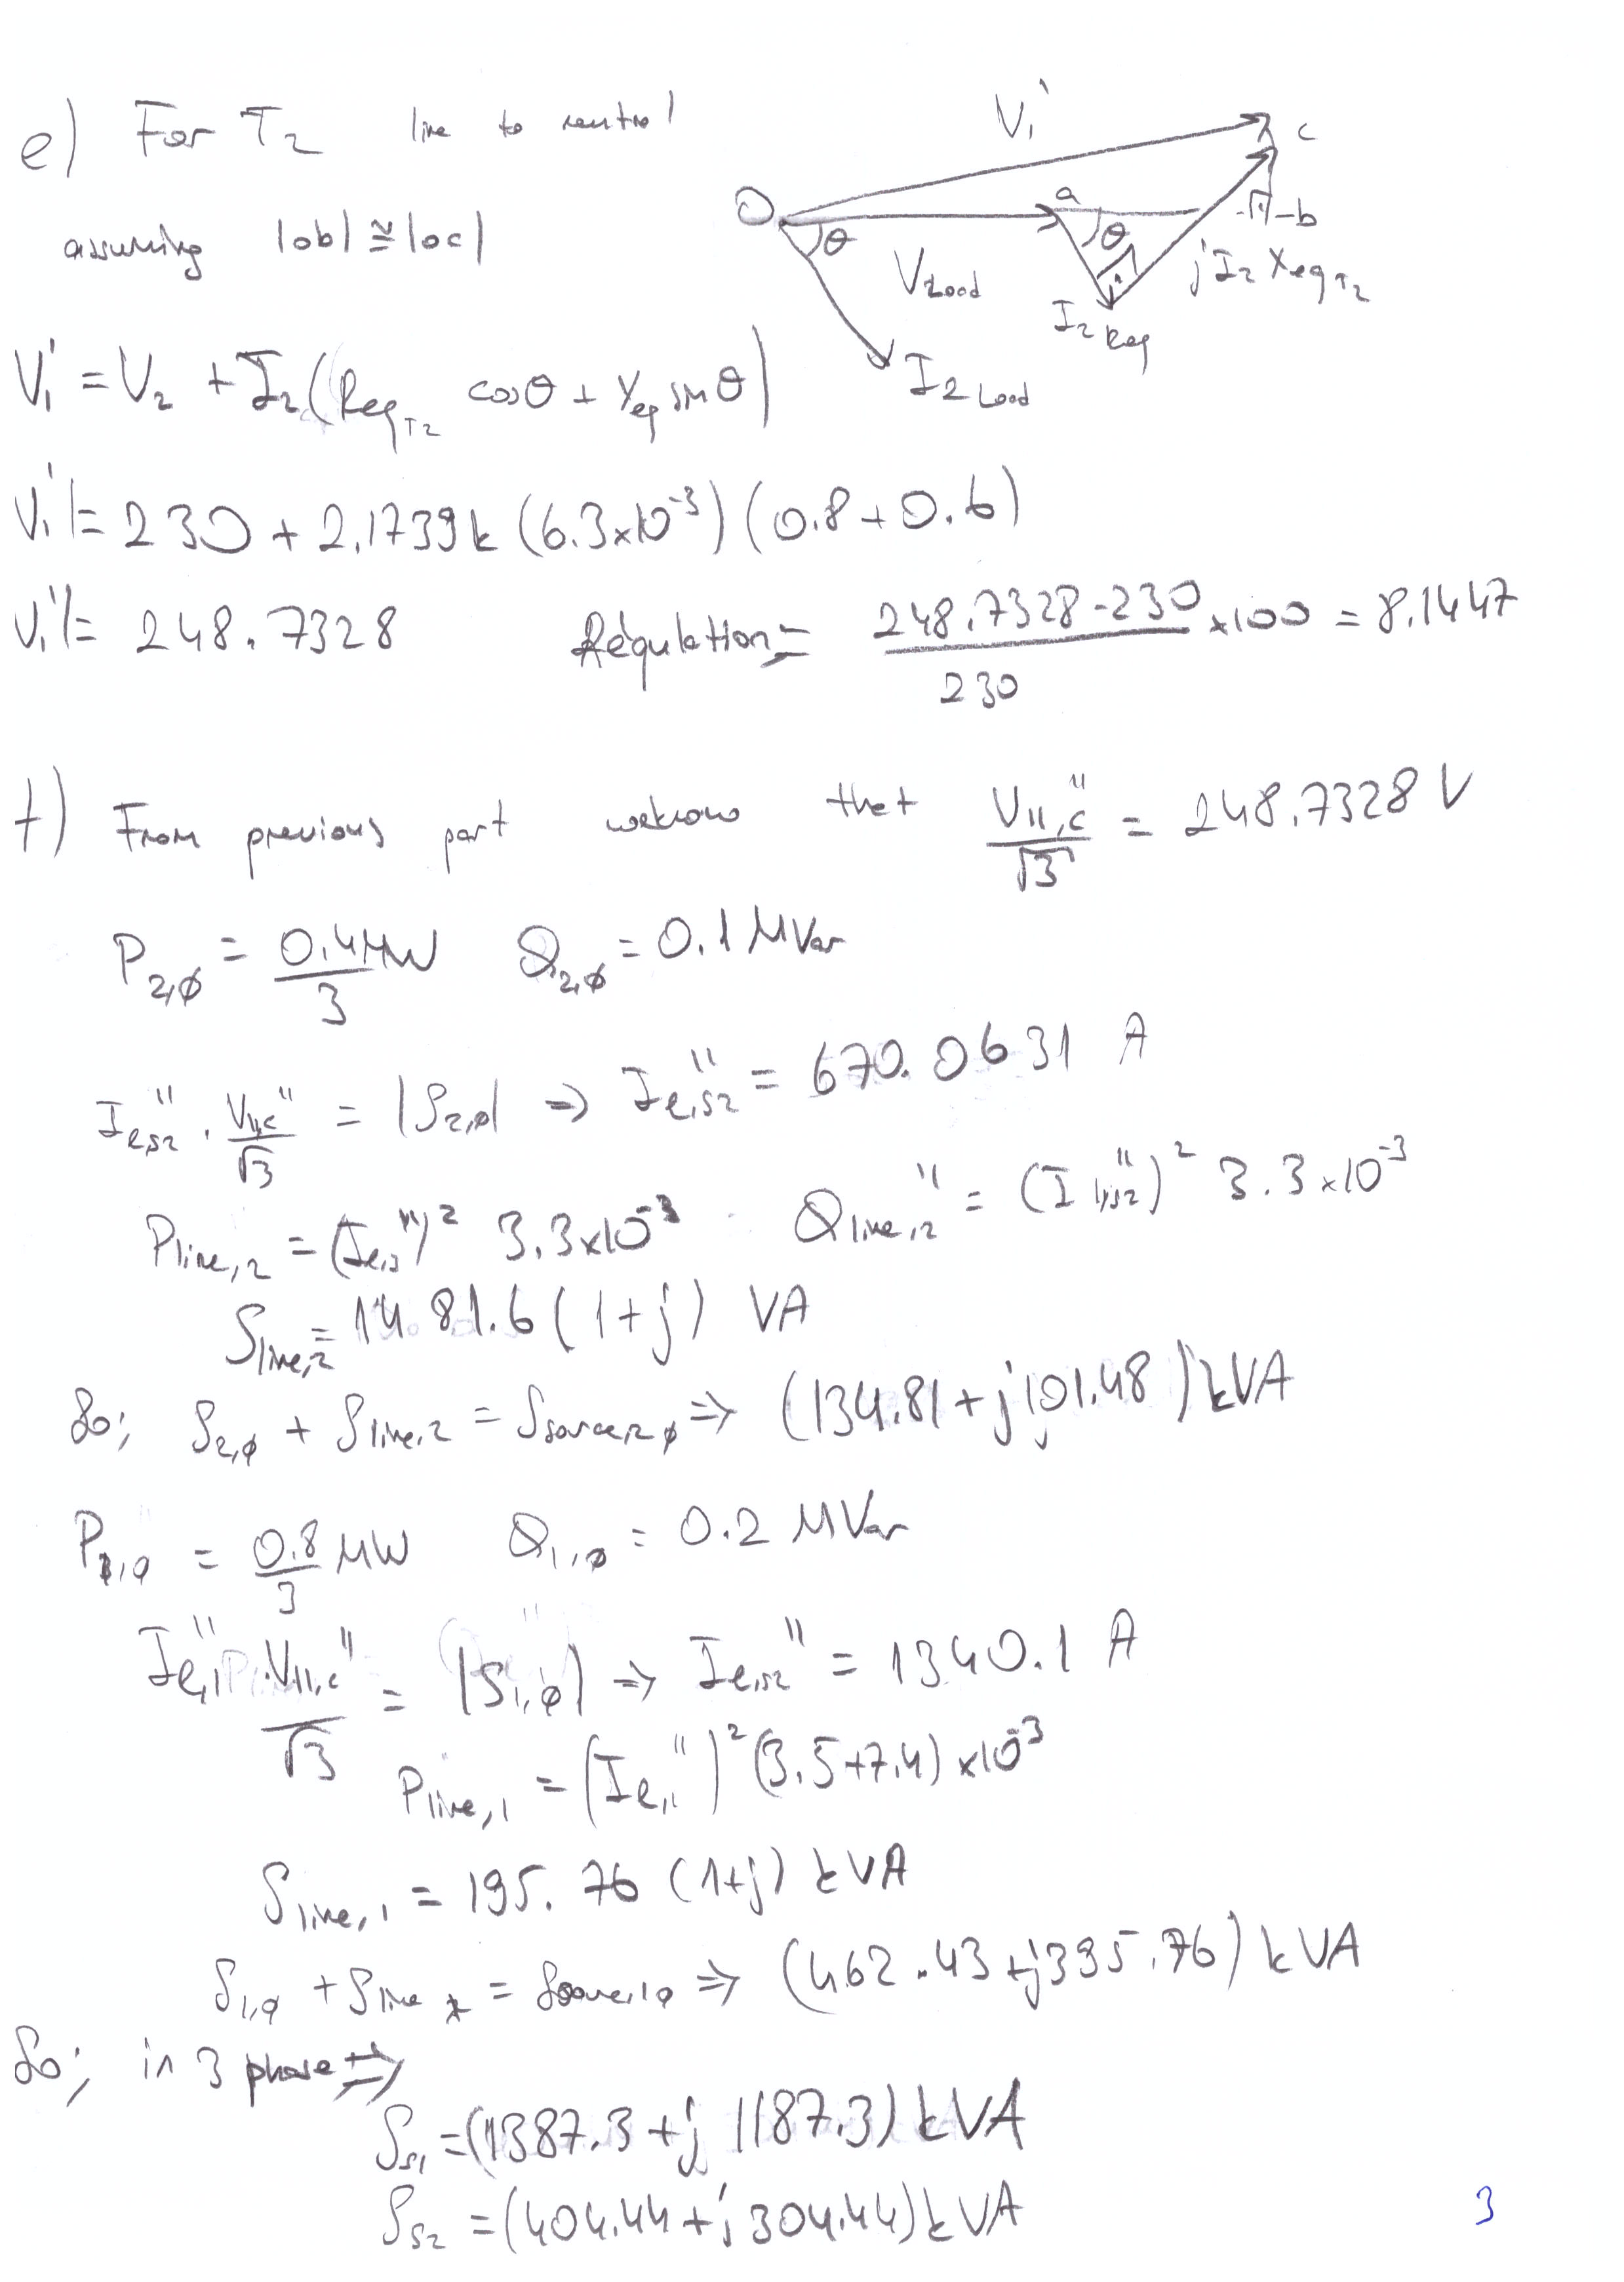 e) For T2 line to neutral
assuming |ob| ≅ |oc|
O θ V1' a θ c b
V2Load I2Req jI2XeqT2
I2Load
V1' = V2 + I2(ReqT2 cosθ + Xeq sinθ)
V1'|= 230 + 2.1739k (6.3x10^-3) (0.8+0.6)
V1'|= 248.7328 Regulation = (248.7328-230)/230 x100 = 8.1447
f) From previous part weknow that Vll,c''/√3 = 248.7328 V
P2,ø = 0.4MW/3 Q2,ø = 0.1MVar
Ie,s2'' . Vll,c''/√3 = |S2,ø| => Ie,s2'' = 670.0631 A
Pline,2 = (Ie,s'')^2 3.3x10^-3 Qline,2'' = (Il,s2'')^2 3.3x10^-3
Sline,2 = 1481.6(1+j) VA
So; S2,ø + Sline,2 = Ssource,2ø => (134.81+j101.48)kVA
P1,ø = 0.8/3 MW Q1,ø = 0.2 MVar
Ie,1'' . Vll,c''/√3 = |S1,ø| => Ie,s2'' = 1340.1 A
Pline,1 = (Ie,1'')^2 (3.5+7.4) x10^-3
Sline,1 = 195.76 (1+j) kVA
S1,ø + Sline = Ssource,1ø => (462.43+j395.76) kVA
So; in 3 phase =>
Ss1 = (1387.3+j 1187.3) kVA
Ss2 = (404.44+j 304.44) kVA
3